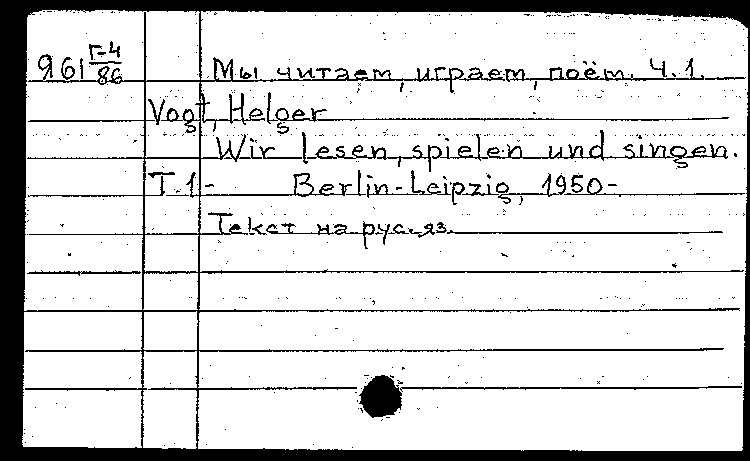 Я61 Г-4/86
Мы читаем, играем, поём. Ч.1.
Vogt, Helger
Wir lesen, spielen und singen.
T.1- Berlin-Leipzig, 1950-
Текст на рус. яз.